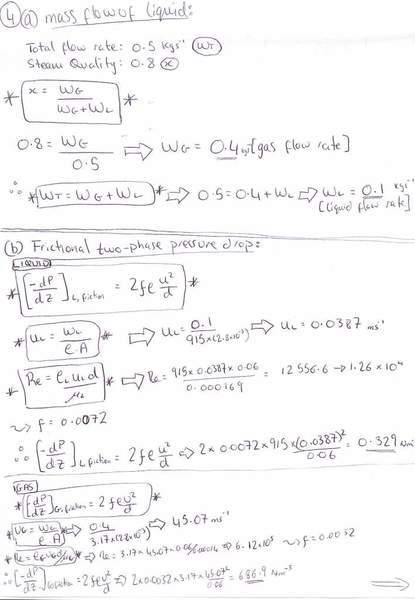 4 a) mass flow of liquid:
Total flow rate: 0.5 kgs⁻¹ (WT)
Steam Quality: 0.8 (x)
* x = WG / WG+WL *
0.8 = WG / 0.5 ⇒ WG = 0.4 [gas flow rate]
∴ * WT = WG + WL * ⇒ 0.5 = 0.4 + WL ⇒ WL = 0.1 kgs⁻¹
[liquid flow rate]
(b) Frictional two-phase pressure drop:
LIQUID
* [-dP/dZ] L, friction = 2fρ u²/d *
* uL = WL / ρ.A * ⇒ UL = 0.1 / 915×(2.8×10⁻³) ⇒ UL = 0.0387 ms⁻¹
* Re = ρL uL d / μL * ⇒ Re = 915 × 0.0387 × 0.06 / 0.000169 = 12556.6 → 1.26 × 10⁴
~> f = 0.0072
∴ [-dP/dZ] L, friction = 2fρ u²/d ⇒ 2 × 0.0072 × 915 × (0.0387)² / 0.06 = 0.329
GAS
* [-dP/dZ] G, friction = 2fρ u²/d *
* UG = WG / ρ.A * ⇒ 0.4 / 3.17(2.8×10⁻³) ⇒ 45.07 ms⁻¹
⇒ Re = 3.17 × 45.07 × 0.06 ⇒ 6.12×10⁵ ~> f = 0.0032
∴ [-dP/dZ] G, friction = 2fρ u²/d ⇒ 2 × 0.0032 × 3.17 × 45.07² / 0.06 = 686.9 Nm⁻³